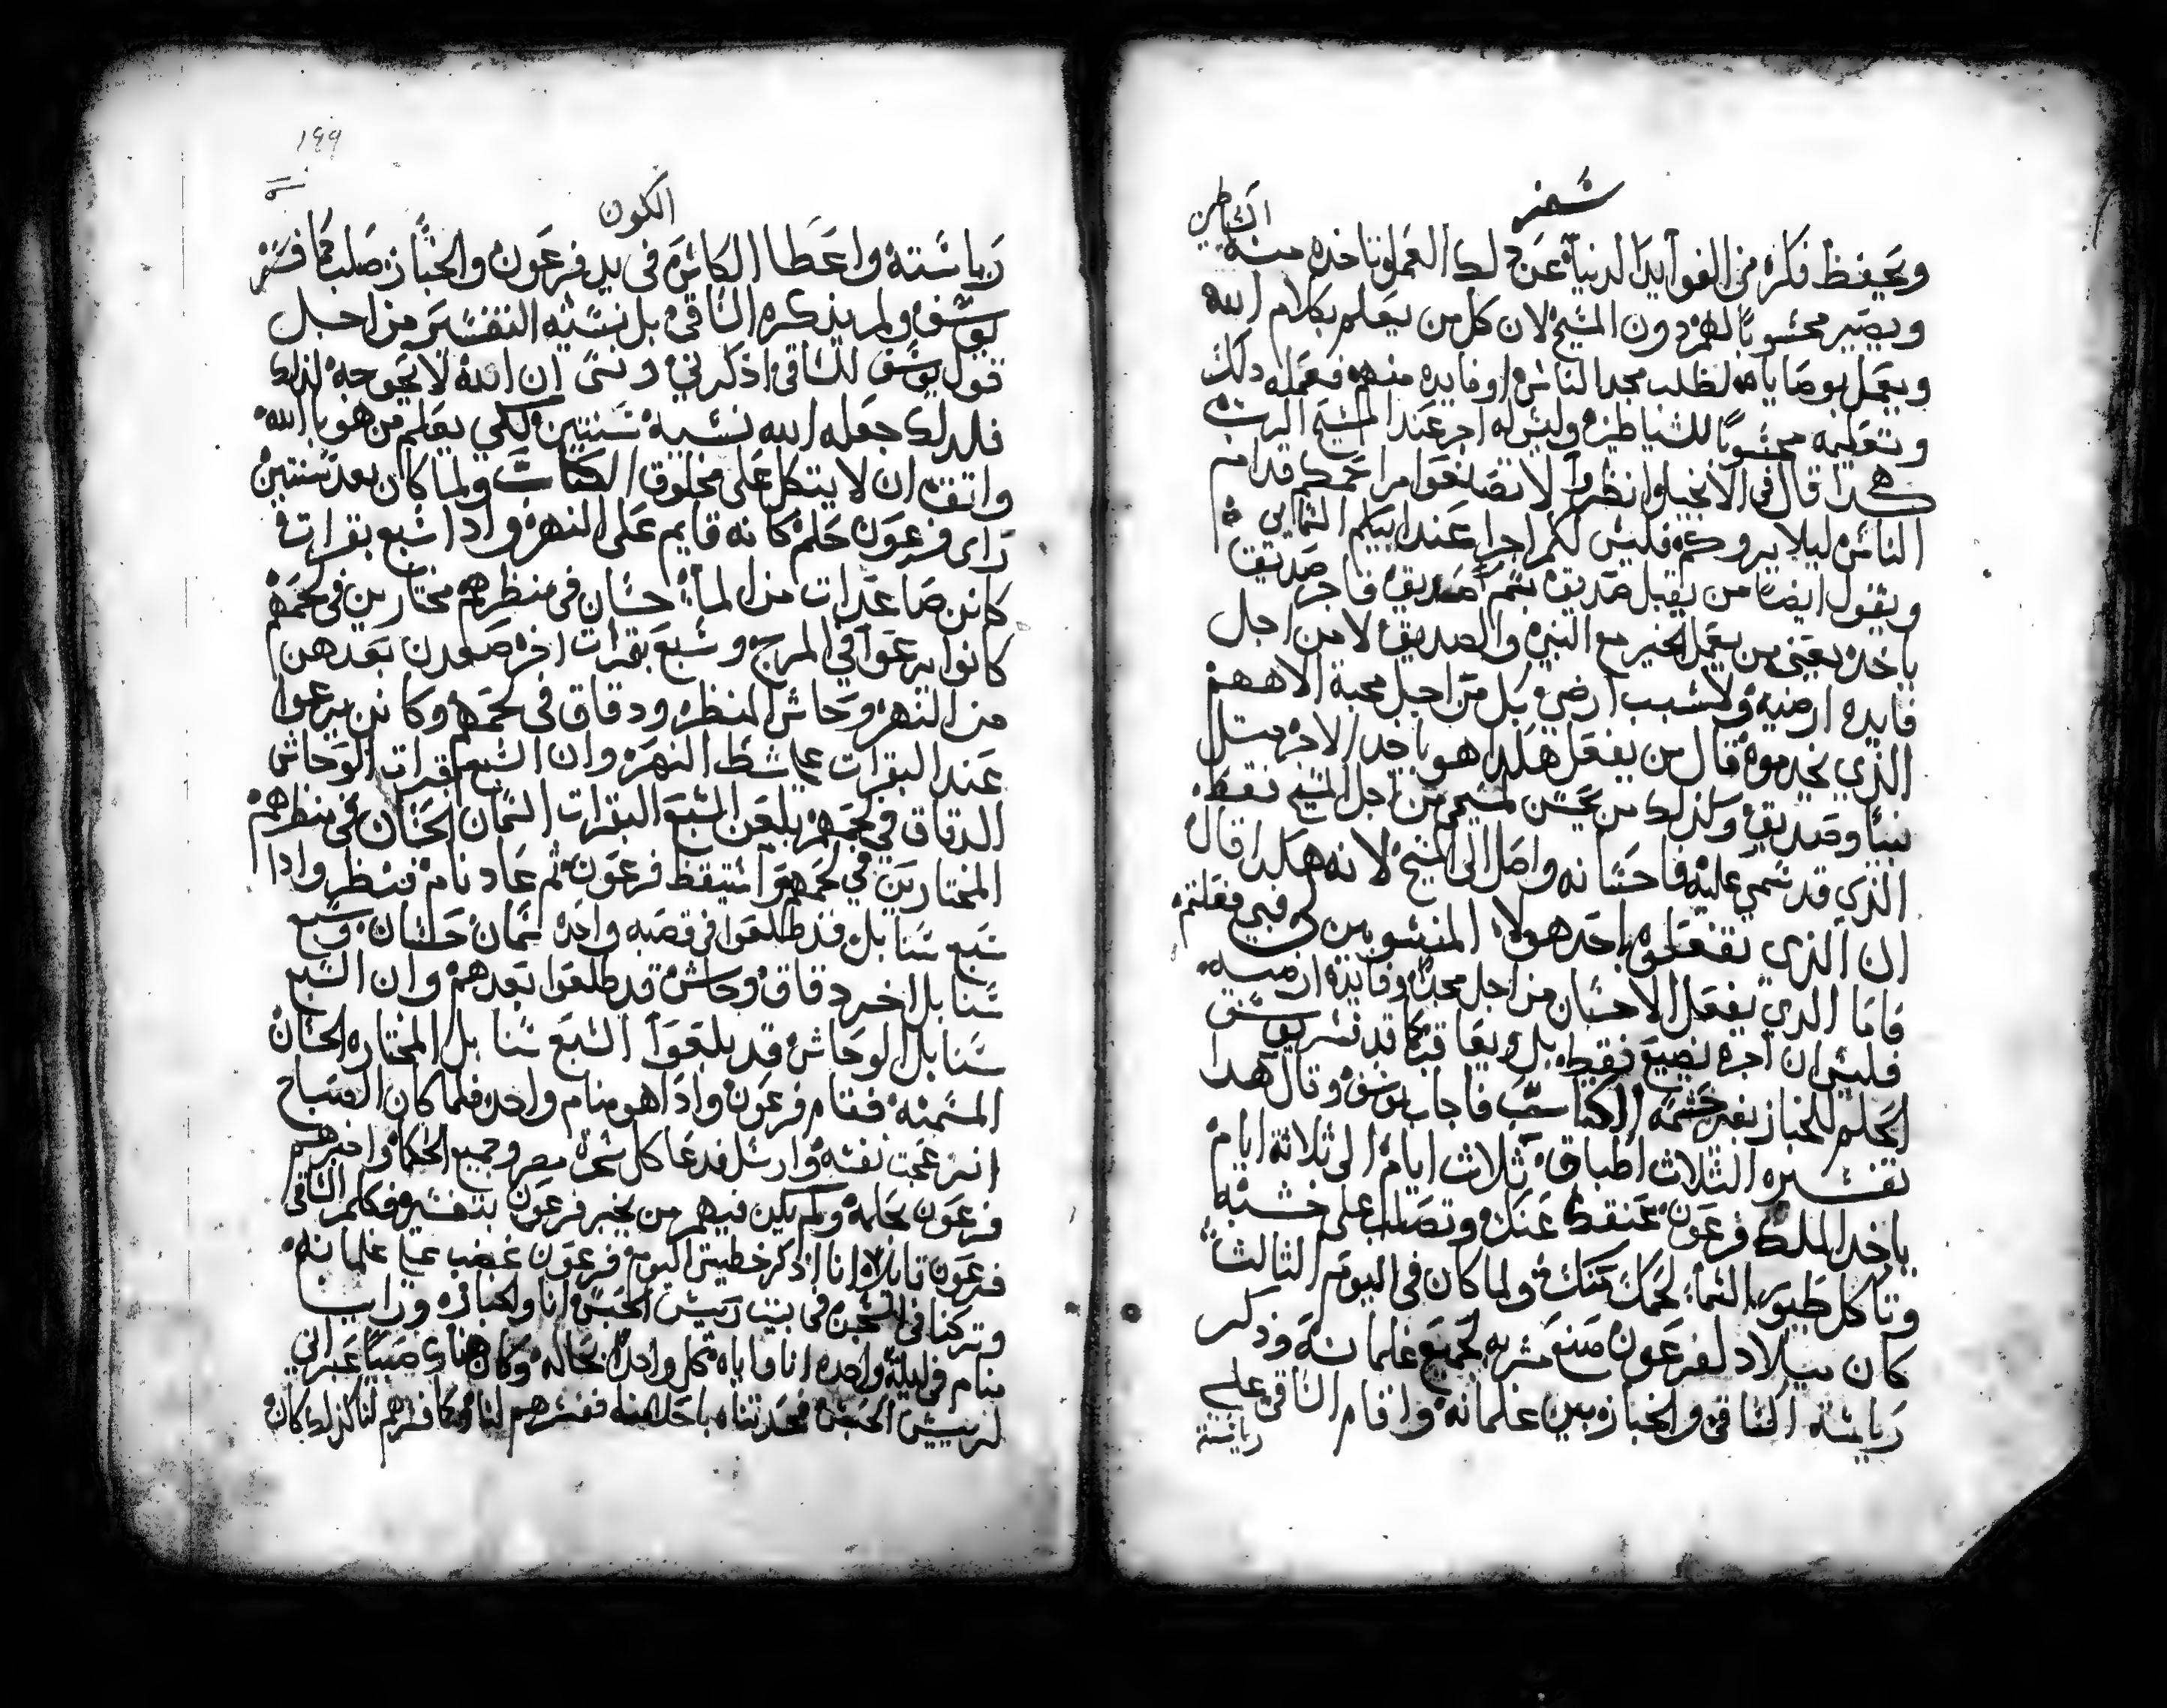 سفر
الشياطين
ويحفظ فكره من الفوايد الدنياه عن ذلك العمل وتاخده منه
ويصير محسوبًا لهم دون المسيح لان كل من يعلم بكلام الله
ويعمل بوصاياه لطلب مجد الناس او فايده منهم فعمله ذلك
وتعليمه محسوبًا للشياطين وليس له اجر عند المسيح الرب
هكدا قال في الانجيل انظروا لا تصنعوا مراحمكم قدام
الناس ليلا يروكم فليس لكم اجرا عند ابيكم السماىي
ويقول ايضا من يقبل صديق بسم صديق فاجر صديق
ياخد يعني من يعمل الخير مع النبي والصديق لا من اجل
فايده ارضيه ولا سبب ارضي بل من اجل محبة الاههم
الذي يخدموه قال من يفعل هكدا هو ياخد الاجر متل
نبيًا وصديق وكذلك من يحسن لمسيحي من اجل المسيح فقط
الذي قد سمي عليه فاحسانه واصل الى المسيح لانه هكدا قال
ان الذي تفعلوه باحد هولا المنسوبين لي فبي فعلتم
فاما الدي يفعل الاحسان من اجل مجدًا وفايده ارضيه
فليس ان اجره يضيع فقط بل ويعاقب كما قد فسر يوسف
الحلم للخباز بغير حشمه الكتاب فاجاب يوسف وقال هدا
تفسيره التلات اطباق ثلاث ايام الى ثلاثة ايام
ياخد الملك فرعون عنقك عنك وتصلب على خشبه
وتاكل طيور السما لحمك عنك ولما كان في اليوم الثالث
كان ميلاد لفرعون صنع مشربه لجميع غلمانه وذكر
رياسة الساقي والخباز بين غلمانه واقام الساقي على
رياسته
١٩٩
الكون
رياسته واعطا الكاس في يد فرعون والخباز صلب كما فسر
يوسف ولم يذكره الساقي بل نسيه التفسير من اجل
قول يوسف للساقي اذكرني ونسى ان الله لا يحوجه لذلك
فلدلك جعله الله نسيه سنتين لكي يعلم من هو بالله
واتق ان لا يتكل على مخلوق الكتاب ولما كان بعد سنتين
راى فرعون حلم كانه قايم على النهر وادا سبع بقرات
كانن صاعدات من الماء حسان في منظرهم مختارين في لحمهم
كانوا يرعوا في المرج وسبع بقرات اخر صعدن بعدهن
من النهر وحاش المنظر ودقاق في لحمهم وكانن يرعوا
عند البقرات على شط النهر وان السبع بقرات الوحاش
الدقاق في لحمهم بلعن السبع البقرات السمان الحسان في منظرهم
المختارين في لحمهم واستيقظ فرعون ثم عاد نام فنظر وادا
سبع سنابل قد طلعوا في قصبه واحده سمان حسان وسبع
سنابل اخر دقاق وحاش قد طلعوا بعدهم وان السبع
سنابل الوحاش قد بلعوا السبع سنابل المختاره الحسان
المسمنه فقام فرعون وادا هو منام واحد فلما كان الصباح
انزعجت نفسه وارسل فدعا كل سحرة مصر وجميع الحكما واخبرهم
فرعون بحلمه ولم يكن فيهم من يخبر فرعون بتفسيره فكلم الساقي
فرعون قايلا انا اذكر خطيتي اليوم فرعون غضب على غلمانه
وتركنا في السجن في بيت رييس الحبس انا والخباز وراينا
منام في ليله واحده انا واياه كل واحدًا بحاله وكان هناك صبيًا عبراني
لرييس الحبس فحدتناه باحلامنا ففسرهم لنا وكما فسرهم لنا كذلك كان